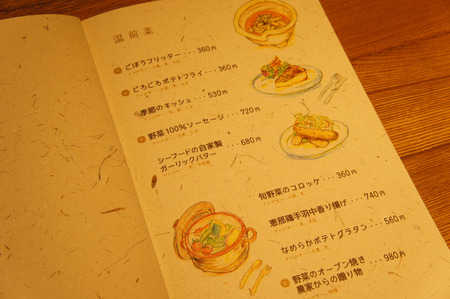 温前菜
ごぼうフリッター・・・360円
ごろごろポテトフライ・・・360円
季節のキッシュ・・・530円
野菜100%ソーセージ・・・720円
シーフードの自家製
ガーリックバター・・・680円
旬野菜のコロッケ・・・360円
恵那鶏手羽中香り揚げ・・・740円
なめらかポテトグラタン・・・560円
野菜のオーブン焼き
農家からの贈り物・・・980円